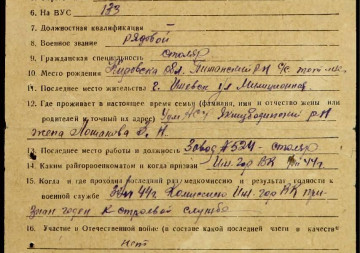 6. На ВУС 133
7. Должностная квалификация —
8. Военное звание рядовой
9. Гражданская специальность столяр
10. Место рождения Кировская обл.
11. Последнее место жительства г. Ижевск ул.
12. Где проживает в настоящее время семья (фамилия, имя и отчество жены или
родителей и точный их адрес) р-н
жена
13. Последнее место работы и должность Завод № 524 - столяр
14. Каким райгорвоенкоматом и когда призван ГВК 44 г.
15. Когда и где проходил последний раз медкомиссию и результат годности к
военной службе 44 г. Комиссией гор ВК при-
знан годен к строевой службе
16. Участие в Отечественной войне (в составе какой последней части и качестве)
нет